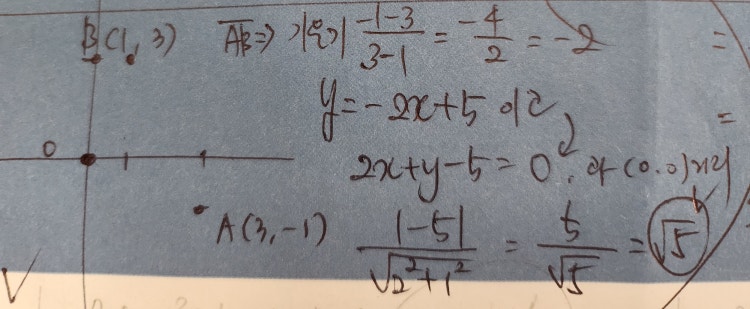 B(1, 3) AB⇒ 기울기 -1-3/3-1 = -4/2 = -2 =
y=-2x+5 이고 =
0 2x+y-5=0. 와 (0.0)거리
A(3,-1) |-5|/√2²+1² = 5/√5 = √5